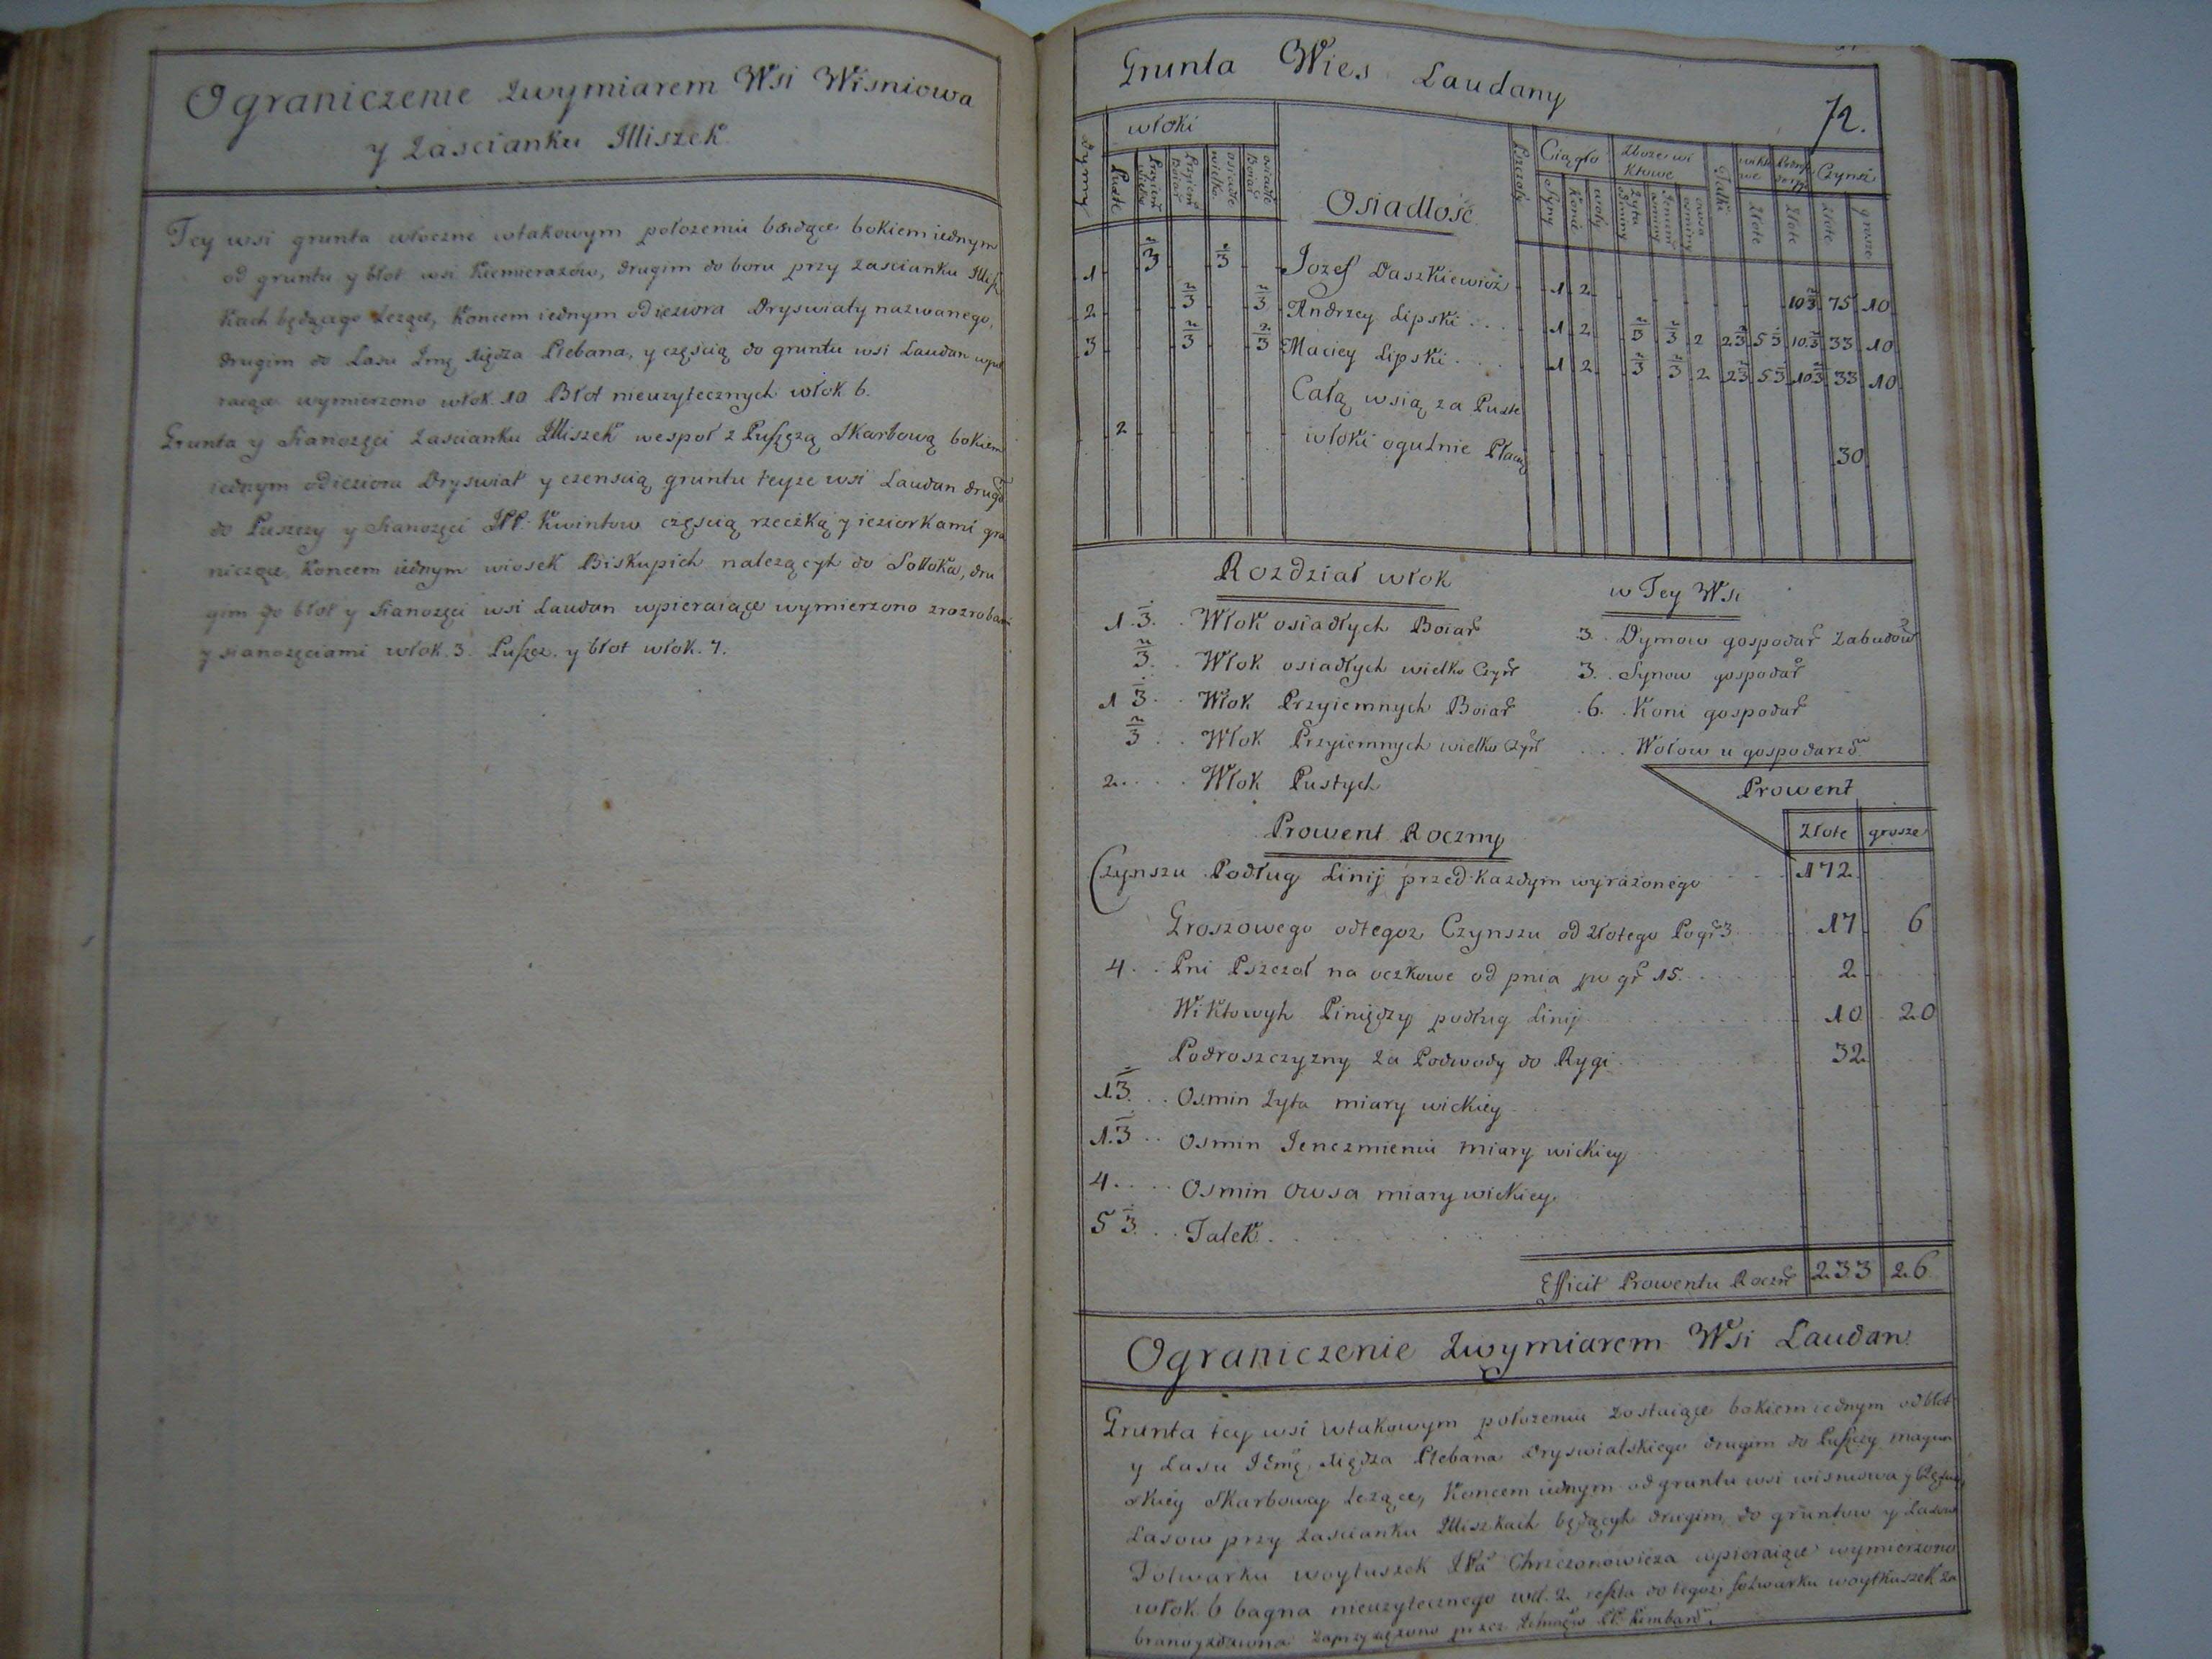 Ograniczenie zwymiarem Wsi Wisniowa
y Zascianku Miszek
Tey wsi grunta włoczne wtakowym położeniu będące bokiem iednym
od gruntu y błot wsi drugim do boru przy zascianku
kach będącego Leżące, koncem iednym od ieziora Dryswiaty nazwanego,
drugim do Lasu Jmę xiędza Plebana, y częscią do gruntu wsi Laudan wpie
raiące wymierzono włok 10 Błot nieuzytecznych włok 6.
Grunta y Sianożęci Zascianku Miszek wespoł z Puszczą Skarbową bokiem
iednym od ieziora Dryswiat y czenscią gruntu teyze wsi Laudan drugi
do Puszczy y Sianozęci JPP. Kwintow częscią rzeczką y ieziorkami gra
niczące, koncem iednym wiosek Biskupich nalezących do Sołoka, dru
gim do błot y Sianozęci wsi Laudan wpieraiące wymierzono zrozrobami
y sianozęciami włok. 3. Puszcz. y błot włok. 7.
Grunta Wies Laudany
72.
Dymy
włoki
Puste
Przyiem
Przyiem Boiar
osiadłe wielko
osiadłe Boiar
Osiadłość
Pszczoły
Ciągło
Syny
Konie
woły
Zboże wi ktowe
Żyta osminy
Jenczm osminy
owsa osminy
Talki
wikto we
Złote
Złote
Czynsz
Złote
grosze
1 2/3 2/3 Jozef Daszkiewicz 1 2 10 2/3 75 10
2 2/3 2/3 Andrzey Lipski . . . 1 2 2/3 2/3 2 2 2/3 5 1/3 10 2/3 33 10
3 2/3 2/3 Maciey Lipski . . . 1 2 2/3 2/3 2 2 2/3 5 1/3 10 2/3 33 10
Całą wsią za Puste
2 włoki ogulnie Płacą 30
Rozdział włok
w Tey Wsi
1 1/3 . . Włok osiadłych Boiar
3 . Dymow gospodar Zabudow
2/3 . . Włok osiadłych wielko Czyn
3 . . Synow gospodar
1 1/3 . . Włok Przyiemnych Boiar
6 . . Koni gospodar
2/3 . . Włok Przyiemnych wielko Czyn
. . . . Wołow u gospodarzo
2 . . . . Włok Pustych
Prowent
Złote grosze
Prowent Roczny
Czynszu Podług Linij przed każdym wyrażonego 172
Groszowego odtegoz Czynszu od złotego Pogr 3 17 6
4 . . Pni Pszczoł na oczkowe od pnia po gr 15 . 2
Wiktowych Piniędzy podług Linij 10 20
Podroszczyzny za Podwody do Rygi 32
1 1/3 . . Osmin Żyta miary wickiey
1 1/3 . . Osmin Jenczmieniu miary wickiey
4 . . . . Osmin owsa miary wickiey
5 1/3 . . Talek
Efficit Prowentu Roczn 233 26
Ograniczenie Zwymiarem Wsi Laudan
Grunta tey wsi wtakowym położeniu zostaiące bokiem iednym od błot
y Lasu Jmę Xiędza Plebana Dryswiatskiego drugim do Puszczy
skiey Skarbowey Leżące, Koncem iednym od gruntu wsi wisniowa y
Lasow przy zascianku Miszkach będących drugim, do gruntow y Lasow
Folwarku woytuszek Chrczonowicza wpieraiące wymierzono
włok. 6 bagna nieuzytecznego wł. 2. reszta do tegoz folwarku woytkuszek za
zaprzysiężono przez